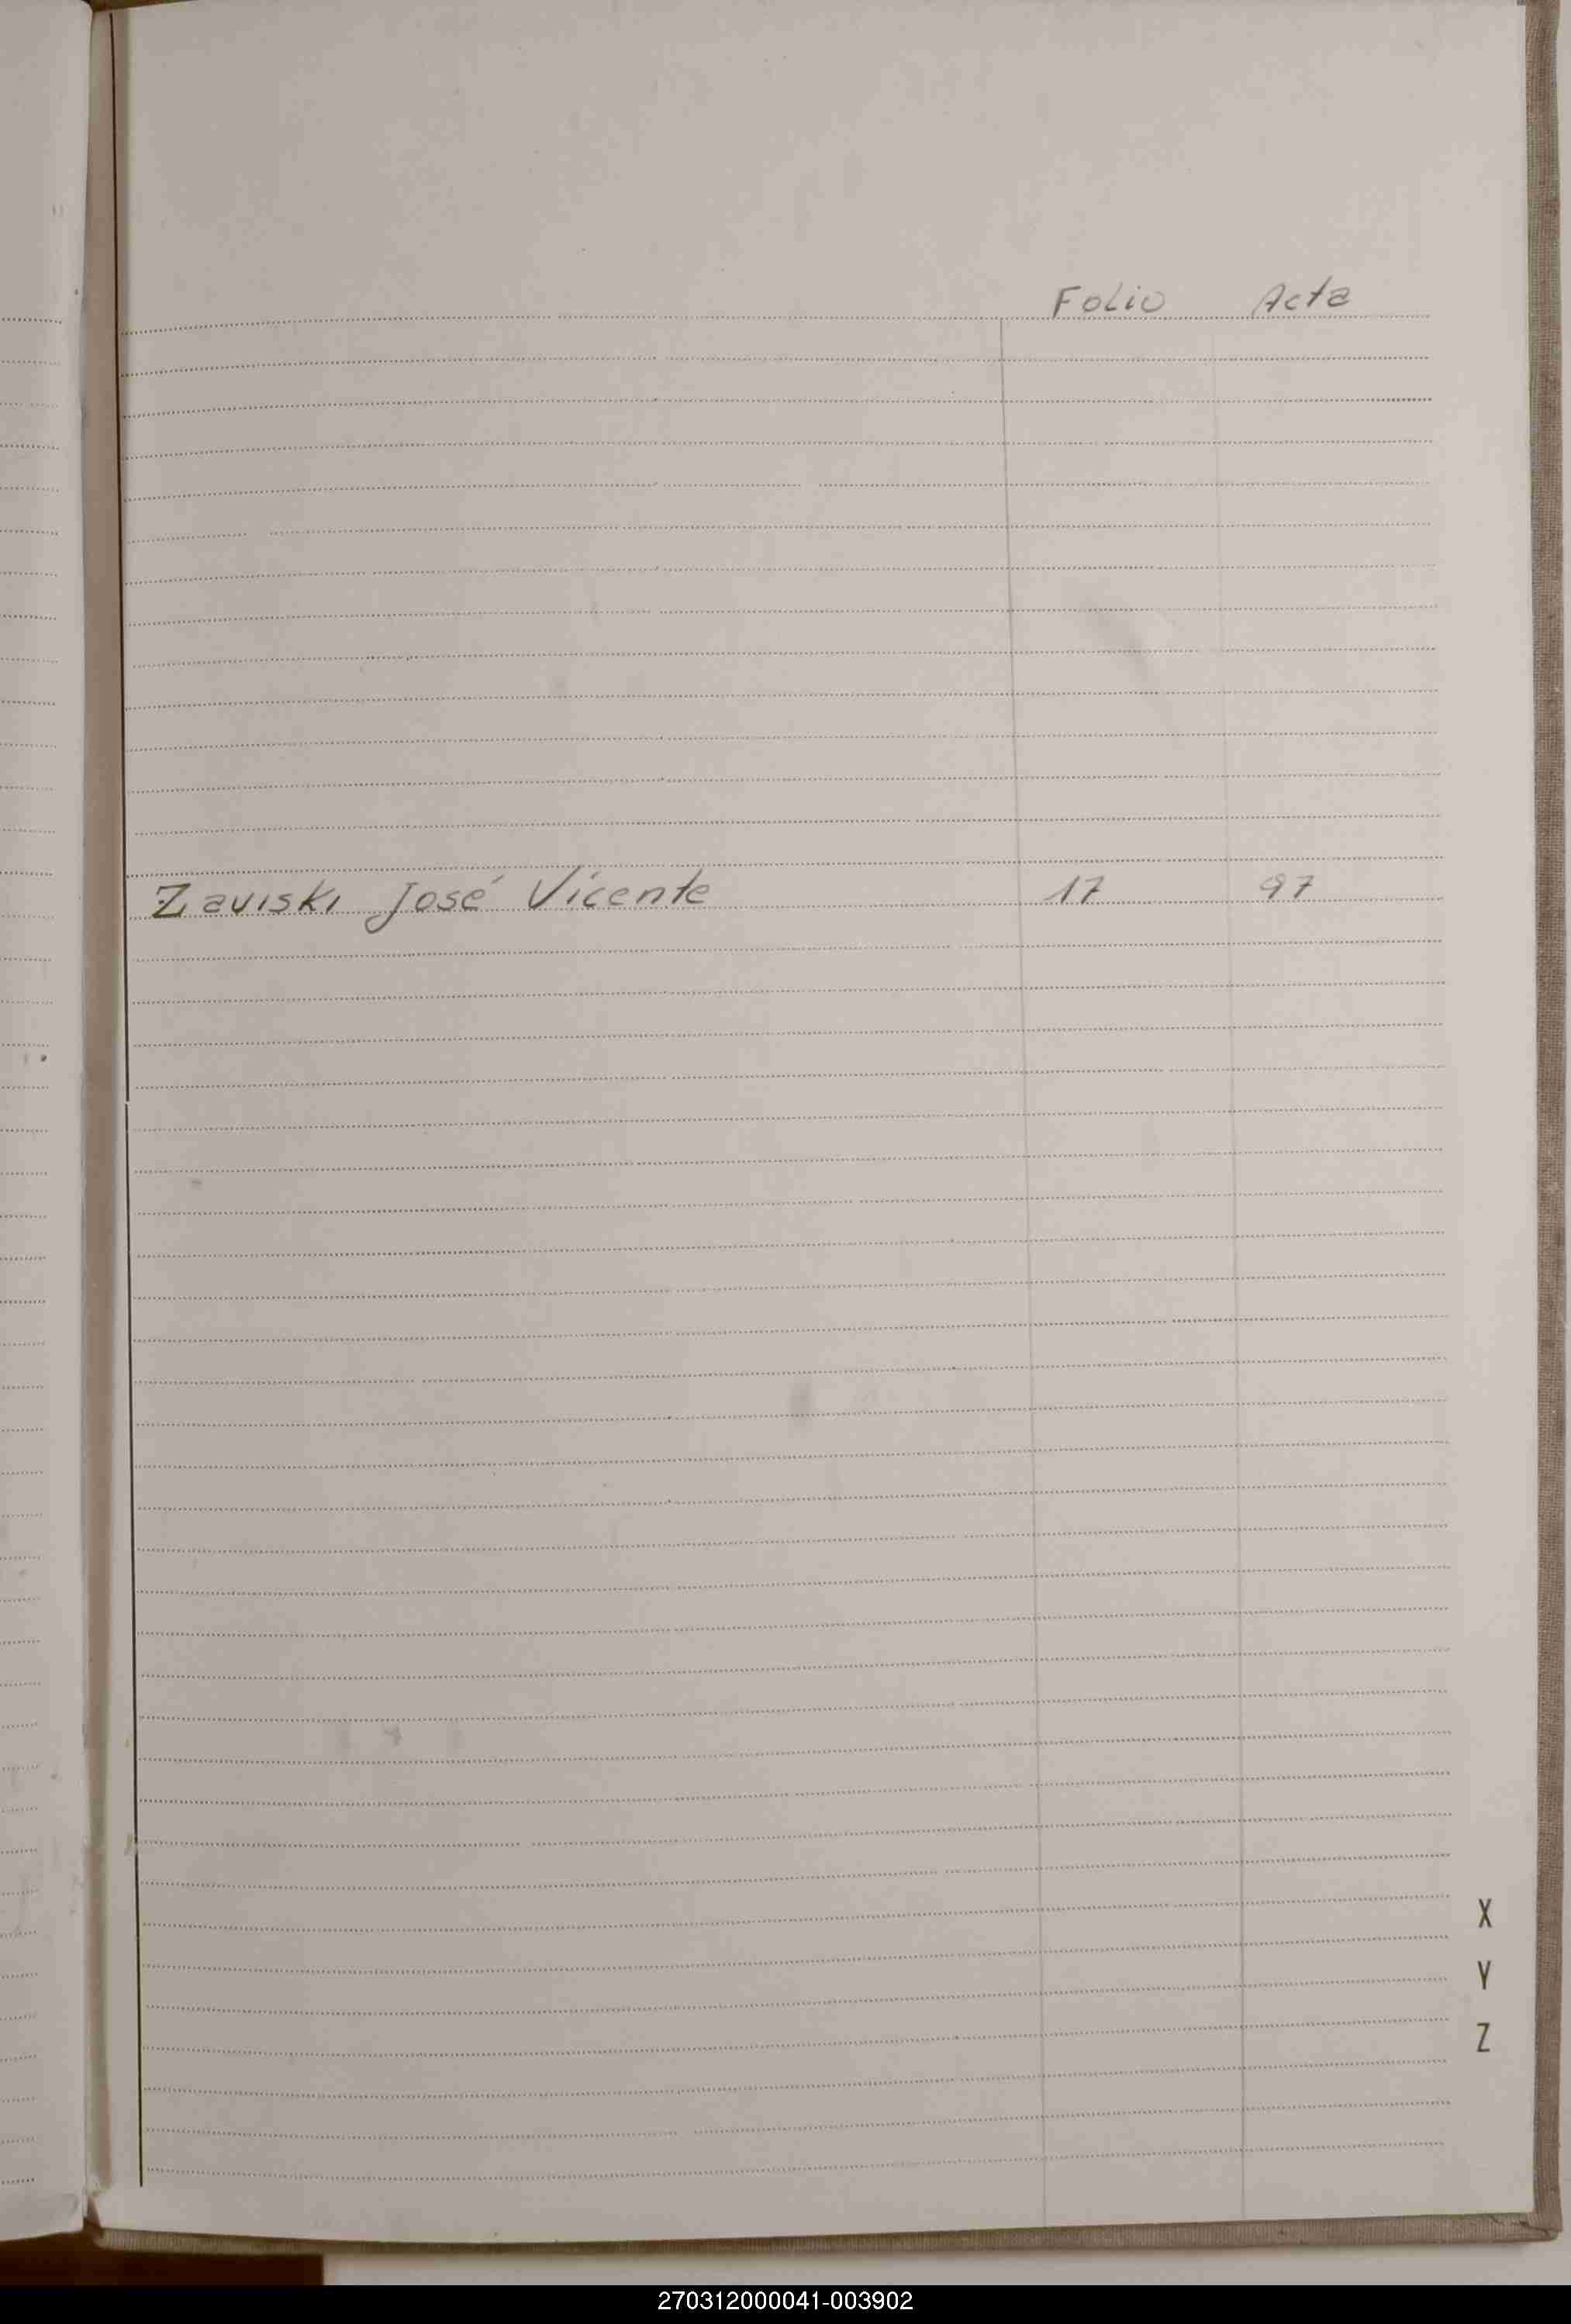 Folio Acta
Zaviski José Vicente 17 97
X
Y
Z
270312000041-003902